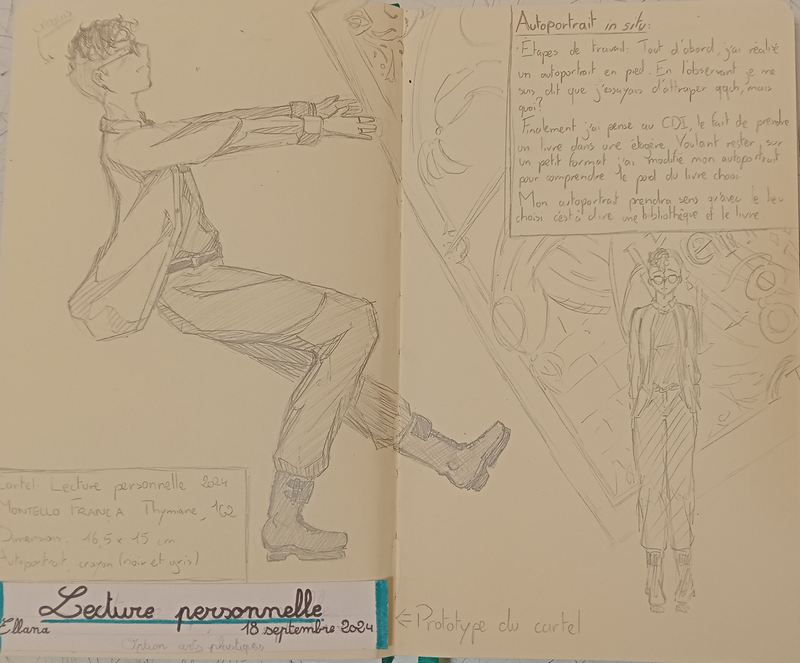 crayon
Cartel: Lecture personnelle 2024
MONTELLO FRANÇA Thymane, 1G2
Dimension: 16,5 x 15 cm
Autoportrait, crayon (noir et gris)
Lecture personnelle
Ellana 18 septembre 2024
Option arts plastiques
Autoportrait in situ:
Étapes de travail: Tout d'abord, j'ai réalisé
un autoportrait en pied. En l'observant je me
suis dit que j'essayais d'attraper qqch, mais
quoi?
Finalement j'ai pensé au CDI, le fait de prendre
un livre dans une étagère. Voulant rester sur
un petit format j'ai modifié mon autoportrait
pour comprendre le poid du livre choisi
Mon autoportrait prendra sens qu'avec le lieu
choisi c'est à dire une bibliothèque et le livre
<- Prototype du cartel